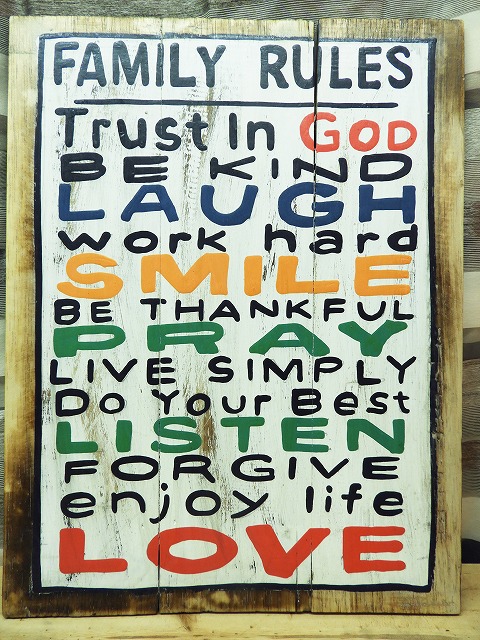 FAMILY RULES
Trust In GOD
BE KIND
LAUGH
work hard
SMILE
BE THANKFUL
PRAY
LIVE SIMPLY
Do Your Best
LISTEN
FORGIVE
enjoy life
LOVE